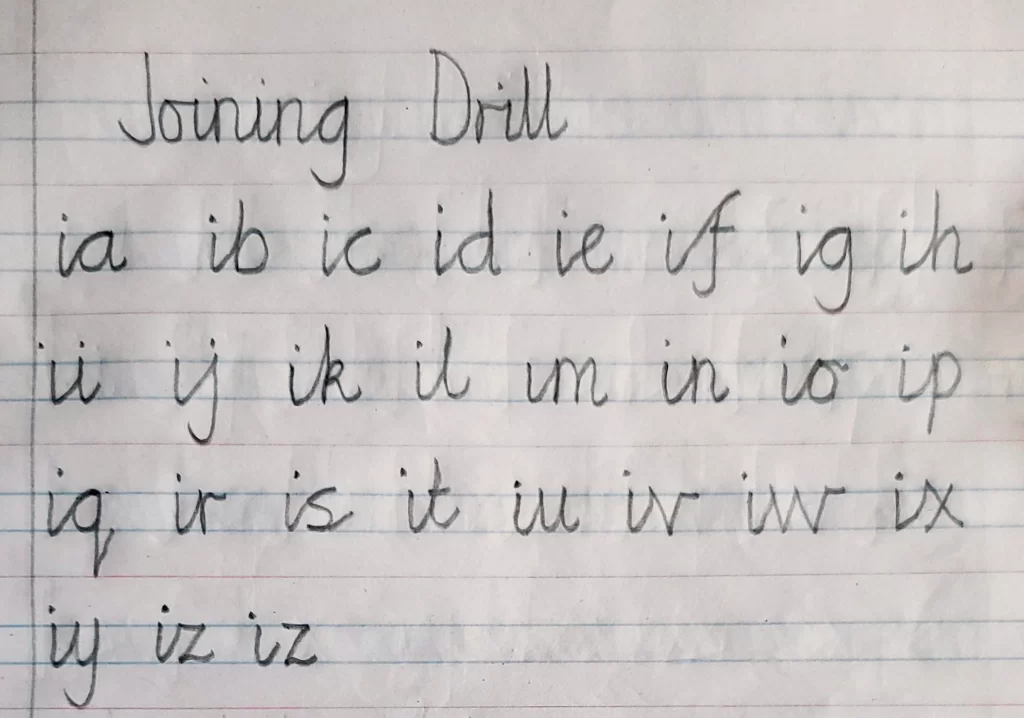 Joining Drill
ia ib ic id ie if ig ih
ii ij ik il im in io ip
iq ir is it iu iv iw ix
iy iz iz